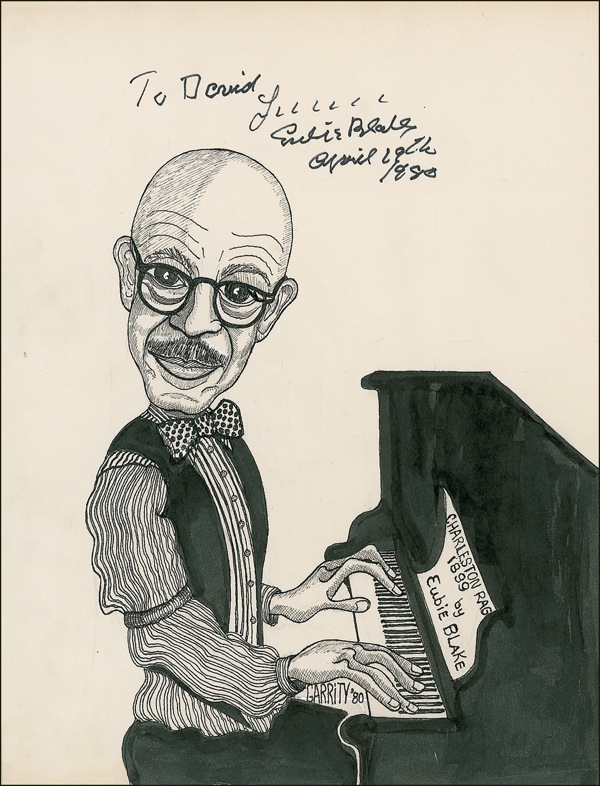 To David
Eubie Blake
April 19th
1980
CHARLESTON RAG
1899 by
EUBIE BLAKE
GARRITY '80